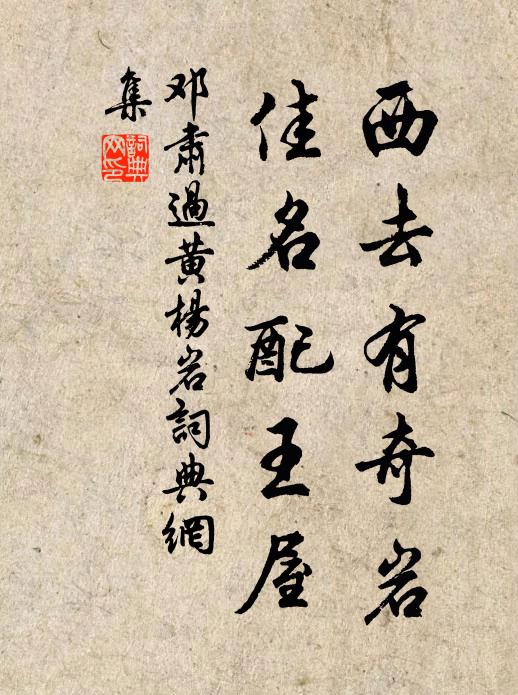 西去有奇岩
佳名配王屋
邓肅過黄楊岩詞典網
集
詞典
网印